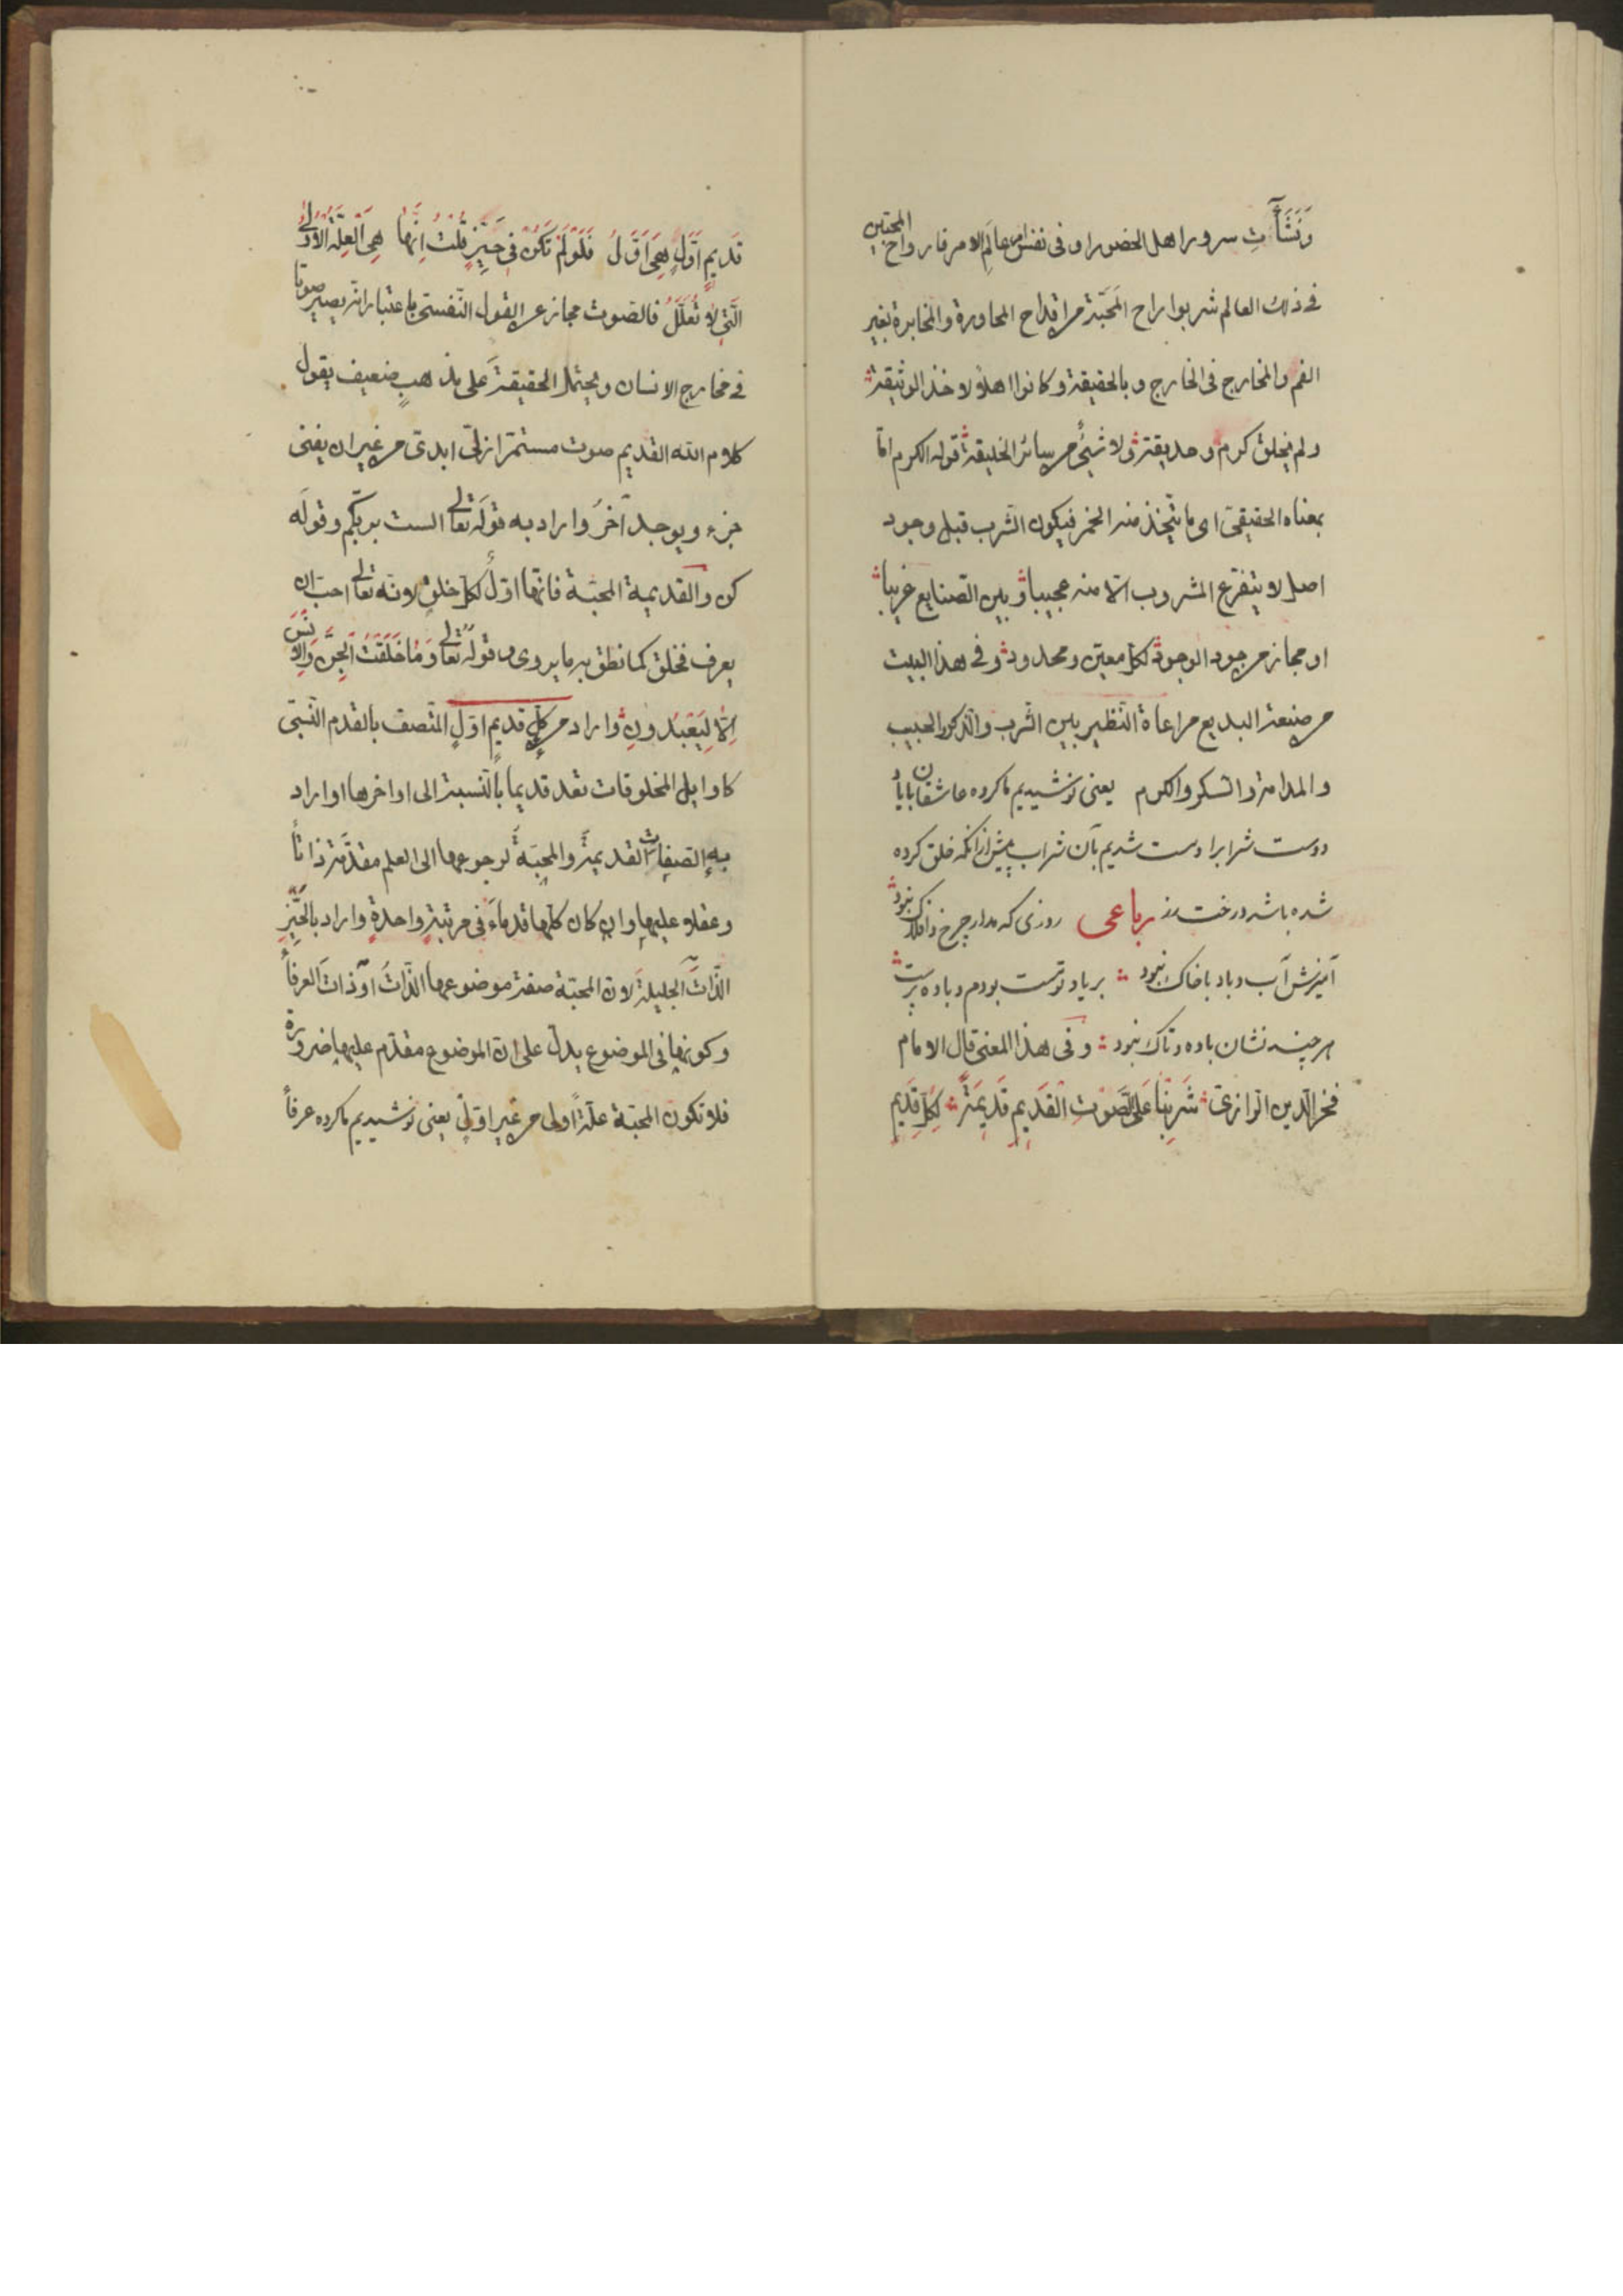 وَنَشَآتِ سرور اهل الحضور او فى نفس عالَم الامر فارواح المحبّين
فى ذلك العالم شربوا راح المَحَبّة من اقداح المحاورة والمخابرة بغير
الفم والمخارج فى الخارج وبالحقيقة وكانوا اهلاً لاخذ الوثيقة
ولم يخلق كرم وحديقة ولا شئ من سائر الخليقة قوله الكرم امّا
بمعناه الحقيقىّ اى ما يتّخذ منه الخمر فيكون الشّرب قبل وجود
اصل لا يتفرّع المشروب الّا منه عجيبا وبين الصّنايع غريبا
او مجاز من جود الوجود لكل معيّن ومحدود وفى هذا البيت
من صنعة البديع مراعاة النّظير بين الشّرب والذكر والحبيب
والمدامة والسّكر والكرم يعنى نوشيديم ما كروه عاشقان باياد
دوست شرابرا مست شديم بآن شراب پيش ازانكه خلق كرده
شده باشد درخت رز رباعى روزى كه مدار چرخ و افلاك نبود
آميزش آب و باد با خاك نبود بر ياد تو مست بودم و باده پرست
هرچند نشان باده و تاك نبود وفى هذا المعنى قال الامام
فخر الدّين الرّازىّ شَرِبْنَا عَلَى الصَّوْتِ القَدِيمِ قَدِيمَةً لِكُلِّ قَدِيمٍ
قَدِيمٍ اَوَّلٍ هِىَ اَوَّلُ فَلَوْ لَمْ تَكُنْ فِى حَيِّزٍ قُلْتُ اِنَّهَا هِىَ الْعِلَّةُ الْاُولَى
الَّتِى لَا تُعَلَّلُ فالصّوت مجاز عن القول النّفسىّ باعتبار انّه يصير صوتا
فى مخارج الانسان ويحتمل الحقيقة على مذهب ضعيف يقول
كلام الله القديم صوت مستمرّ ازلىّ ابدىّ من غير ان يفنى
جزء ويوجد آخر واراد به قوله تعالى الست بربّكم وقوله
كن والقديمة المحبّة فانّها اوّل لكل خلق لانّه تعالى احبّ ان
يعرف فخلق كما نطق به ما يروى و قوله تعالى وَمَا خَلَقْتُ الْجِنَّ وَالْاِنْسَ
اِلَّا لِيَعْبُدُونِ واراد من كلِّ قديمٍ اوّلٍ المتّصف بالقدم النّسبىّ
كاوايل المخلوقات تعد قديما بالنّسبة الى اواخرها او اراد
به الصّفات القديمة والمحبّة لرجوعها الى العلم مقدّمة ذاتاً
وعقلا عليها وان كان كلّها قدماء فى مرتبة واحدة واراد بالحَيِّزِ
الذّات الجليلة لانّ المحبّة صفة موضوعها الذّات او ذات العرفاً
وكونها فى الموضوع يدلّ على انّ الموضوع مقدّم عليها ضرورة
فلا تكون المحبّة علّة اولى من غير اوّلىّ يعنى نوشيديم ما كروه عرفاً